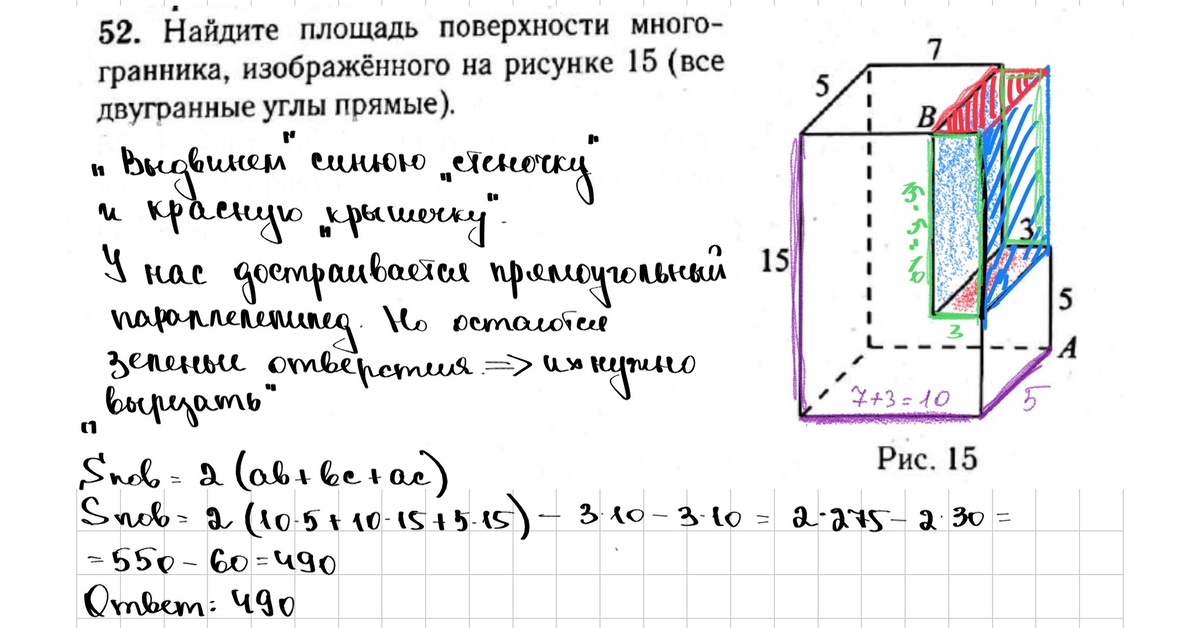 52. Найдите площадь поверхности много-
гранника, изображённого на рисунке 15 (все
двугранные углы прямые).
"Выдвинем" синюю "стеночку"
и красную "крышечку".
У нас достраивается прямоугольный
параллелепипед. Но остаются
зеленые отверстия => их нужно
"вырезать"
Sпов = 2 (ab + bc + ac)
Sпов = 2 (10·5 + 10·15 + 5·15) - 3·10 - 3·10 = 2·275 - 2·30 =
= 550 - 60 = 490
Ответ: 490
7
5
B
3
15
5
3
A
7+3=10
5
Рис. 15